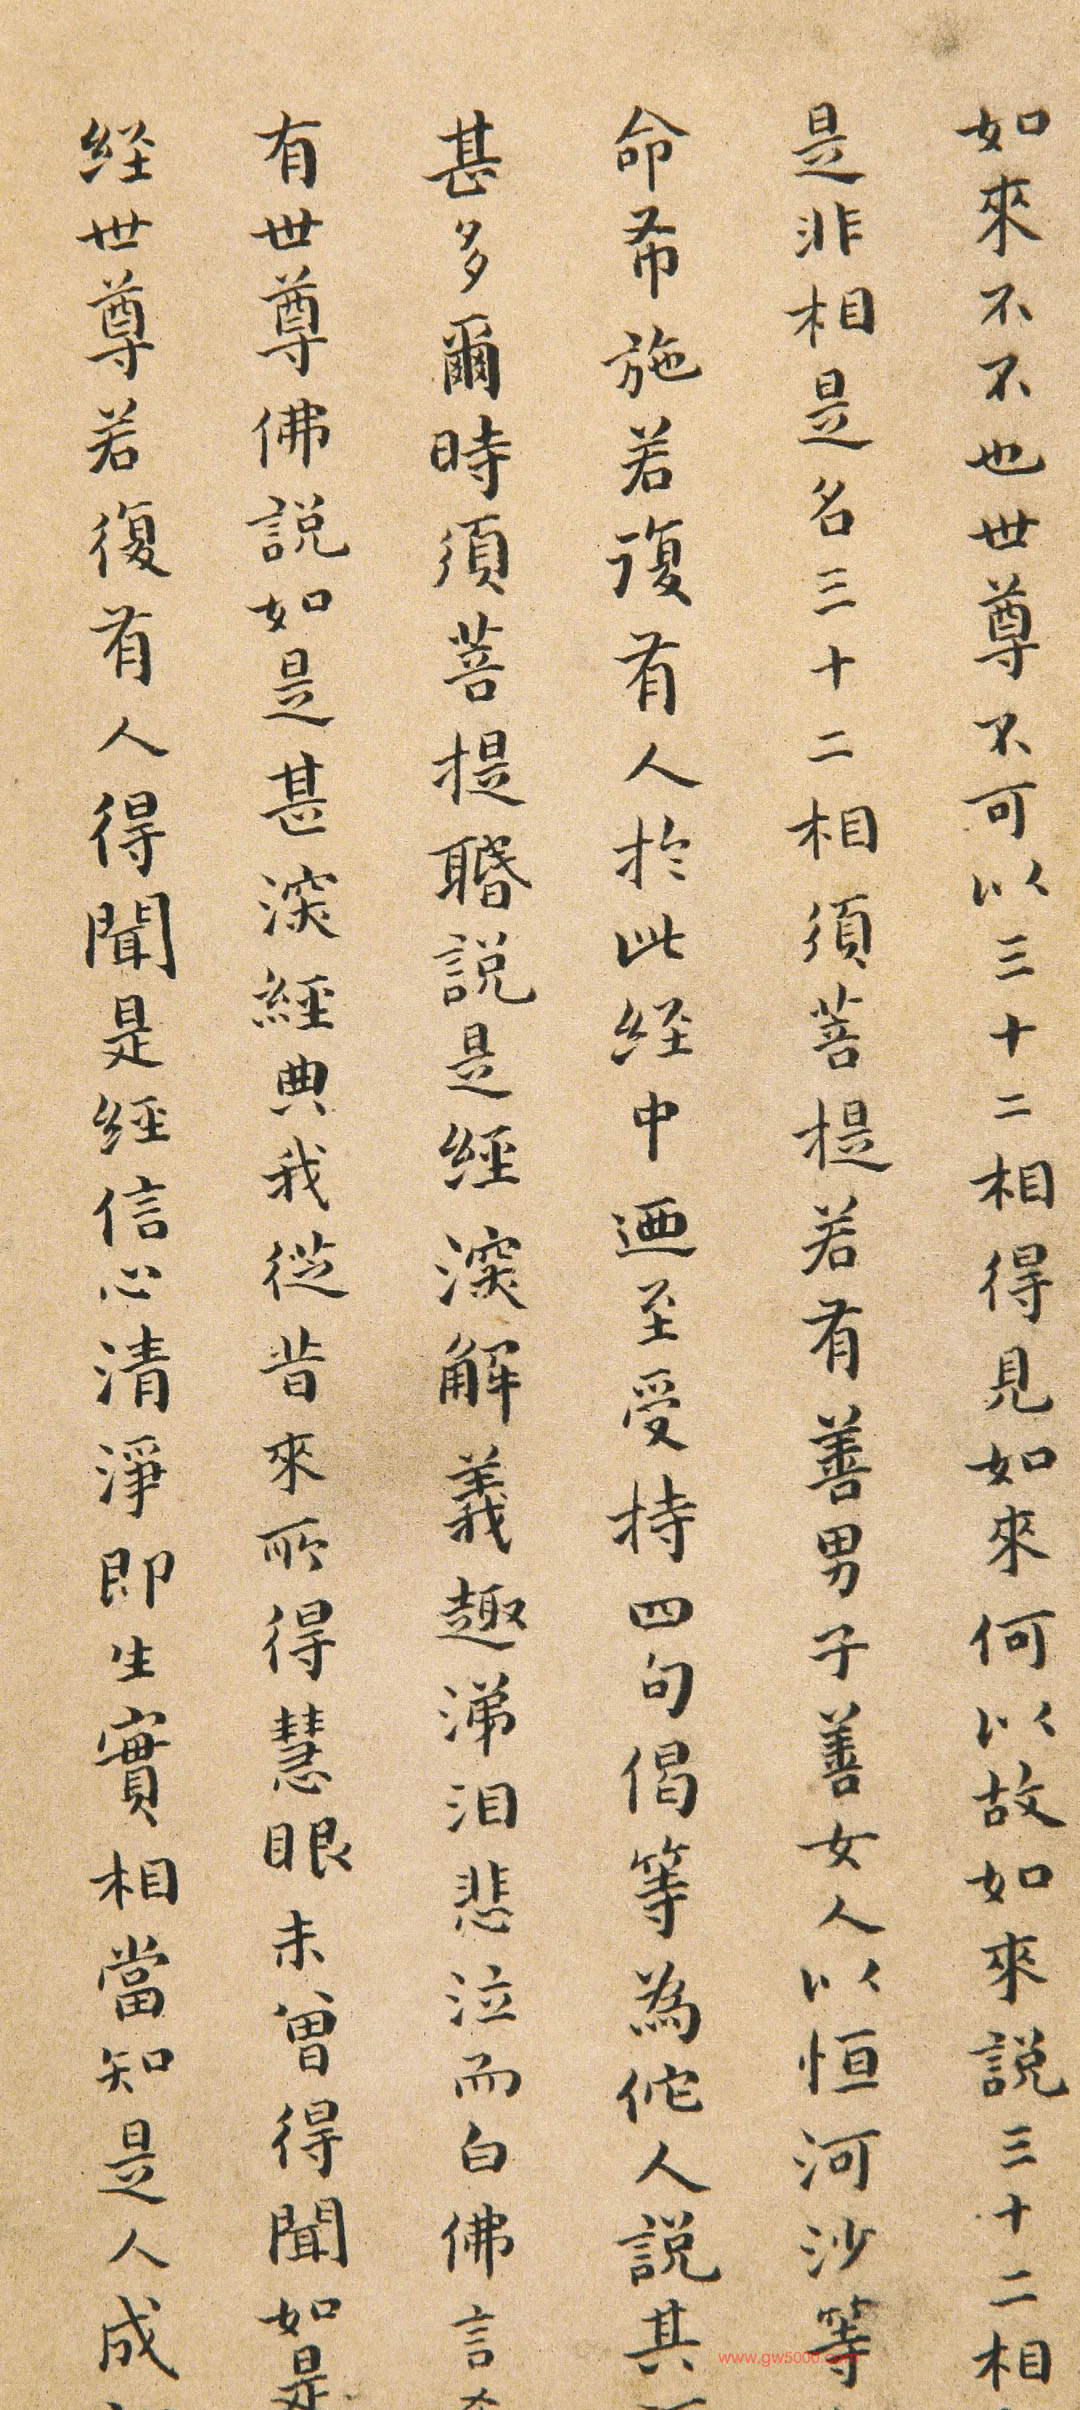 如來不不也世尊不可以三十二相得見如來何以故如來説三十二相
是非相是名三十二相須菩提若有善男子善女人以恒河沙等
命布施若復有人於此経中廼至受持四句偈等為佗人説其
甚多爾時須菩提聞説是經深解義趣涕泪悲泣而白佛言
有世尊佛説如是甚深經典我從昔來所得慧眼未曽得聞如是
経世尊若復有人得聞是經信心清淨即生實相當知是人成
www.gw5000.com